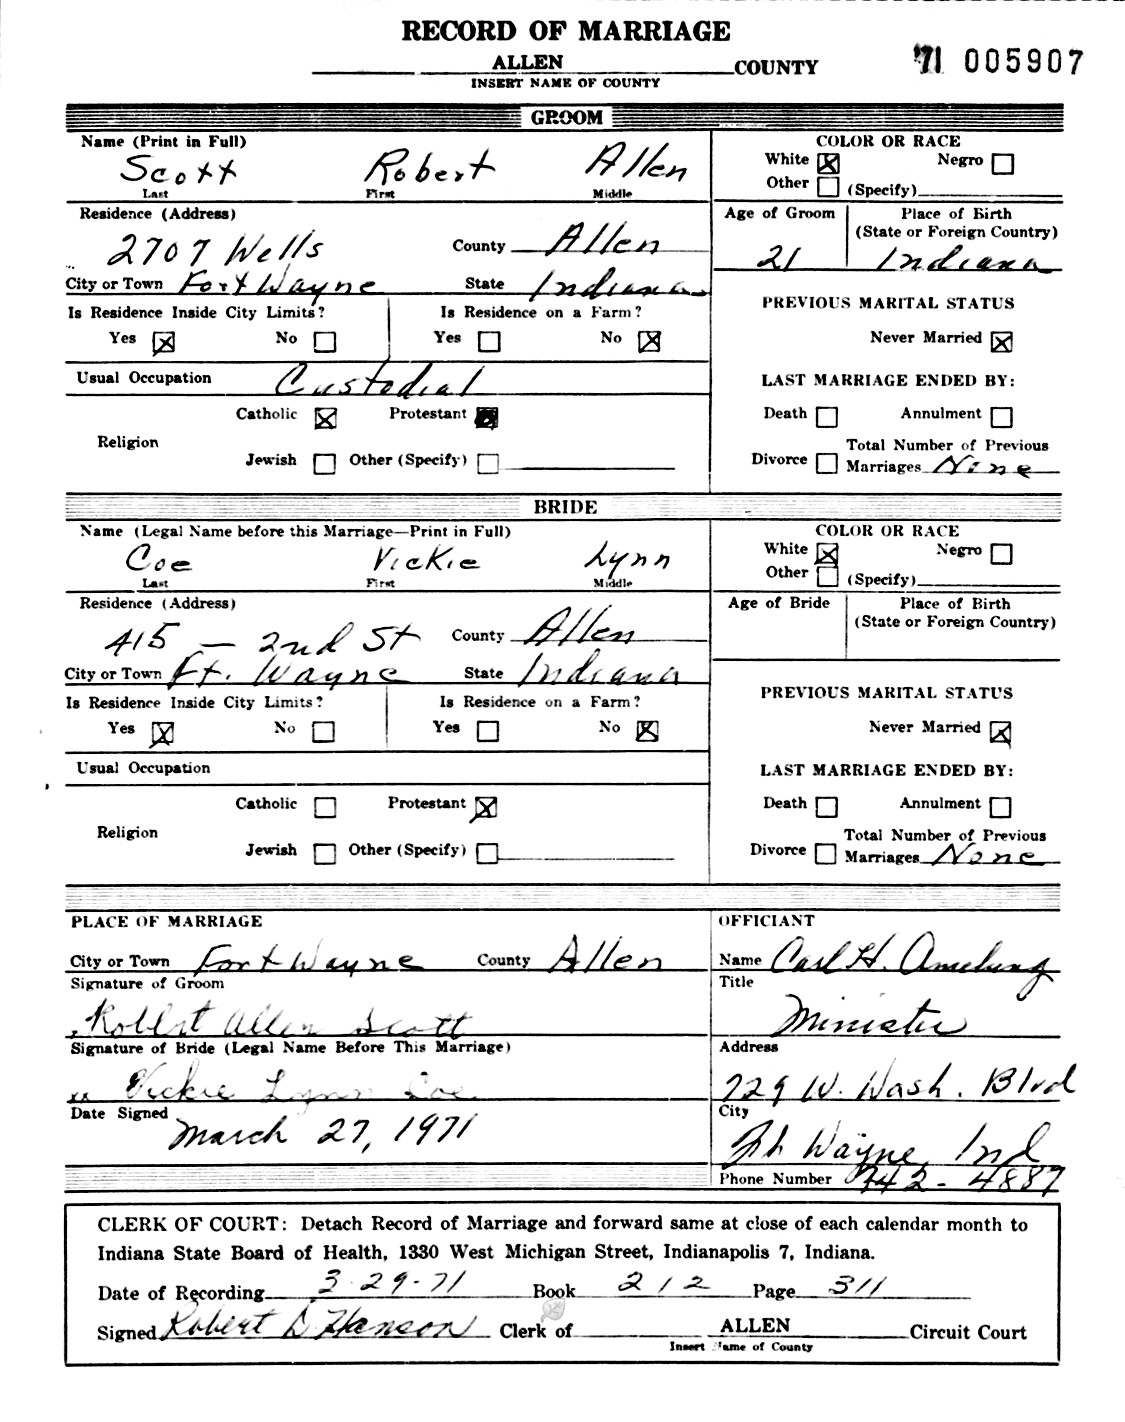 RECORD OF MARRIAGE
ALLEN COUNTY
INSERT NAME OF COUNTY
'71 005907
GROOM
Name (Print in Full)
Scott Robert Allen
Last First Middle
COLOR OR RACE
White ☒ Negro ☐
Other ☐ (Specify)
Residence (Address)
2707 Wells County Allen
City or Town Fort Wayne State Indiana
Age of Groom Place of Birth
(State or Foreign Country)
21 Indiana
Is Residence Inside City Limits? Is Residence on a Farm?
Yes ☒ No ☐ Yes ☐ No ☒
PREVIOUS MARITAL STATUS
Never Married ☒
Usual Occupation Custodial
LAST MARRIAGE ENDED BY:
Catholic ☒ Protestant
Religion
Jewish ☐ Other (Specify) ☐
Death ☐ Annulment ☐
Total Number of Previous
Divorce ☐ Marriages None
BRIDE
Name (Legal Name before this Marriage—Print in Full)
Coe Vickie Lynn
Last First Middle
COLOR OR RACE
White ☒ Negro ☐
Other ☐ (Specify)
Residence (Address)
415 — 2nd St County Allen
City or Town Ft. Wayne State Indiana
Age of Bride Place of Birth
(State or Foreign Country)
Is Residence Inside City Limits? Is Residence on a Farm?
Yes ☒ No ☐ Yes ☐ No ☒
PREVIOUS MARITAL STATUS
Never Married ☒
Usual Occupation
LAST MARRIAGE ENDED BY:
Catholic ☐ Protestant ☒
Religion
Jewish ☐ Other (Specify) ☐
Death ☐ Annulment ☐
Total Number of Previous
Divorce ☐ Marriages None
PLACE OF MARRIAGE
City or Town Fort Wayne County Allen
Signature of Groom
Robert Allen Scott
Signature of Bride (Legal Name Before This Marriage)
Vickie Lynn Coe
Date Signed March 27, 1971
OFFICIANT
Name Carl H. Amelung
Title
Minister
Address
729 W. Wash. Blvd
City
Wayne, Ind
Phone Number 742-4887
CLERK OF COURT: Detach Record of Marriage and forward same at close of each calendar month to
Indiana State Board of Health, 1330 West Michigan Street, Indianapolis 7, Indiana.
Date of Recording 3-29-71 Book 212 Page 311
Signed Robert D Hanson Clerk of ALLEN Circuit Court
Insert Name of County